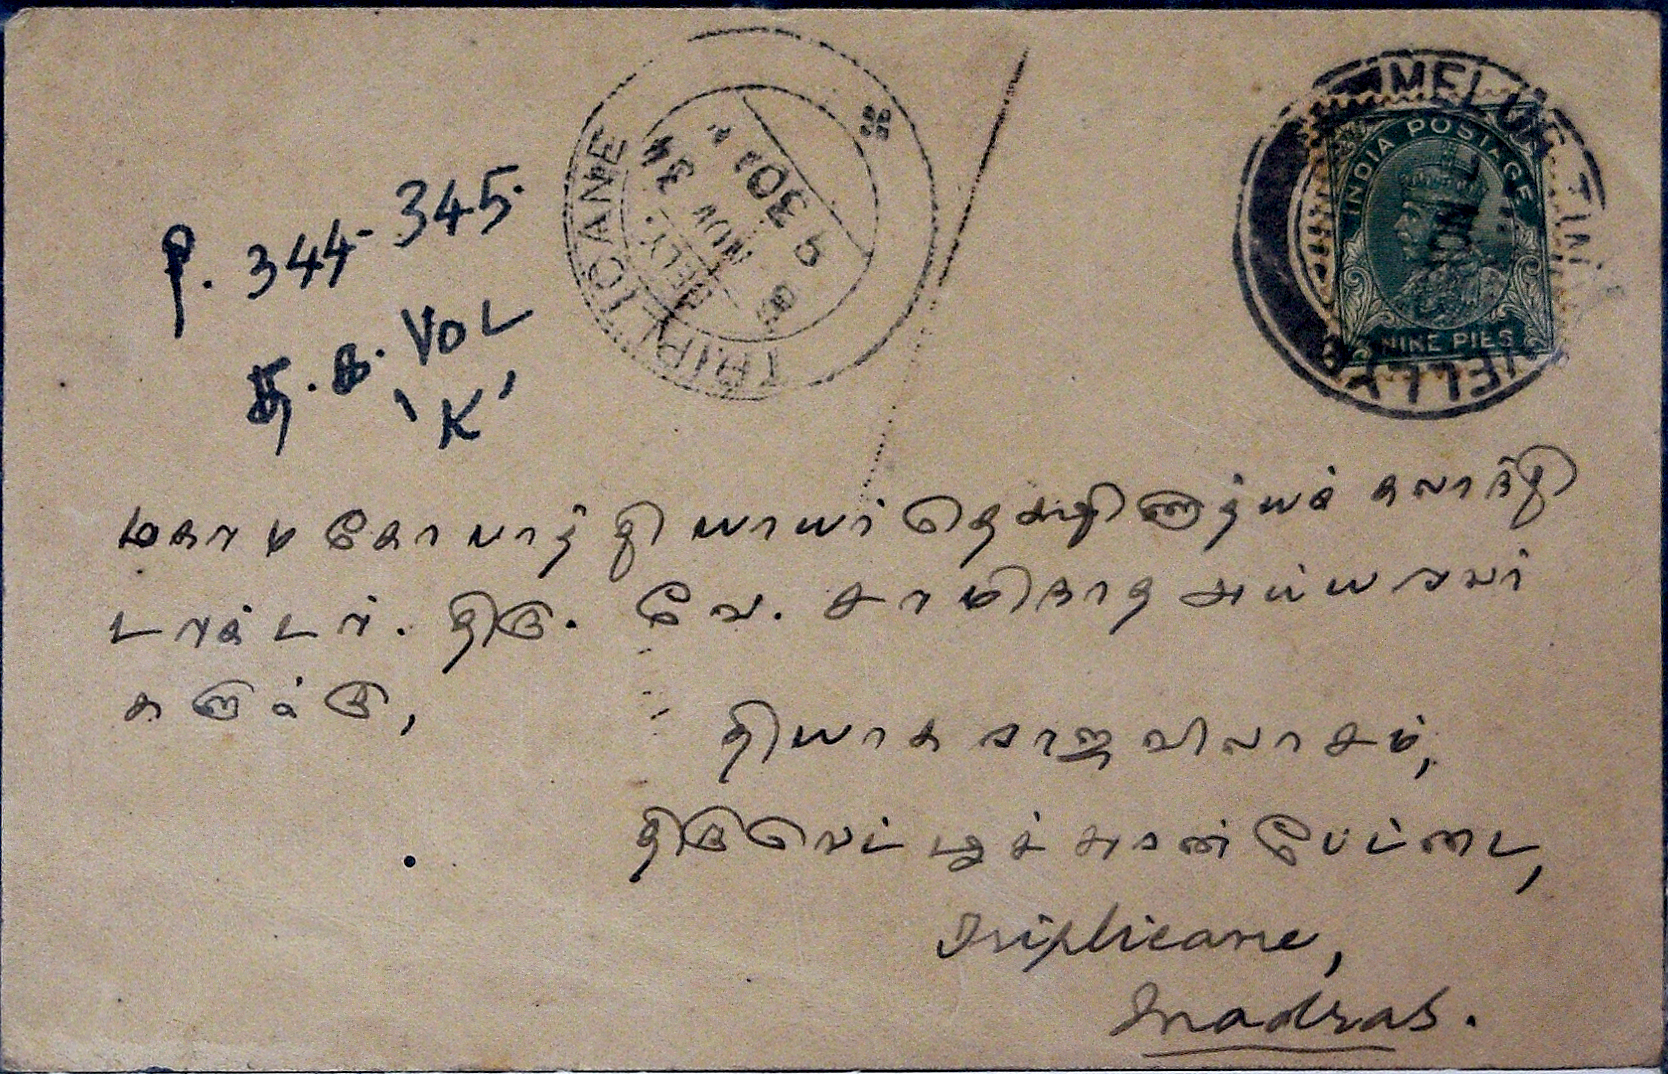 P. 344-345.
த. க. VOL
'K'
TRIPLICANE
DELY.
8 NOV 34
9 30
MELUR TIN
VELLY
INDIA POSTAGE
NINE PIES
மகாமகோபாத்தியாயர் தெக்ஷிணாத்ய கலாநிதி
டாக்டர். திரு. வே. சாமிநாத அய்யரவர்
களுக்கு,
தியாகராஜ விலாசம்,
திருவெட்டீச்சுரன்பேட்டை,
Triplicane,
Madras.